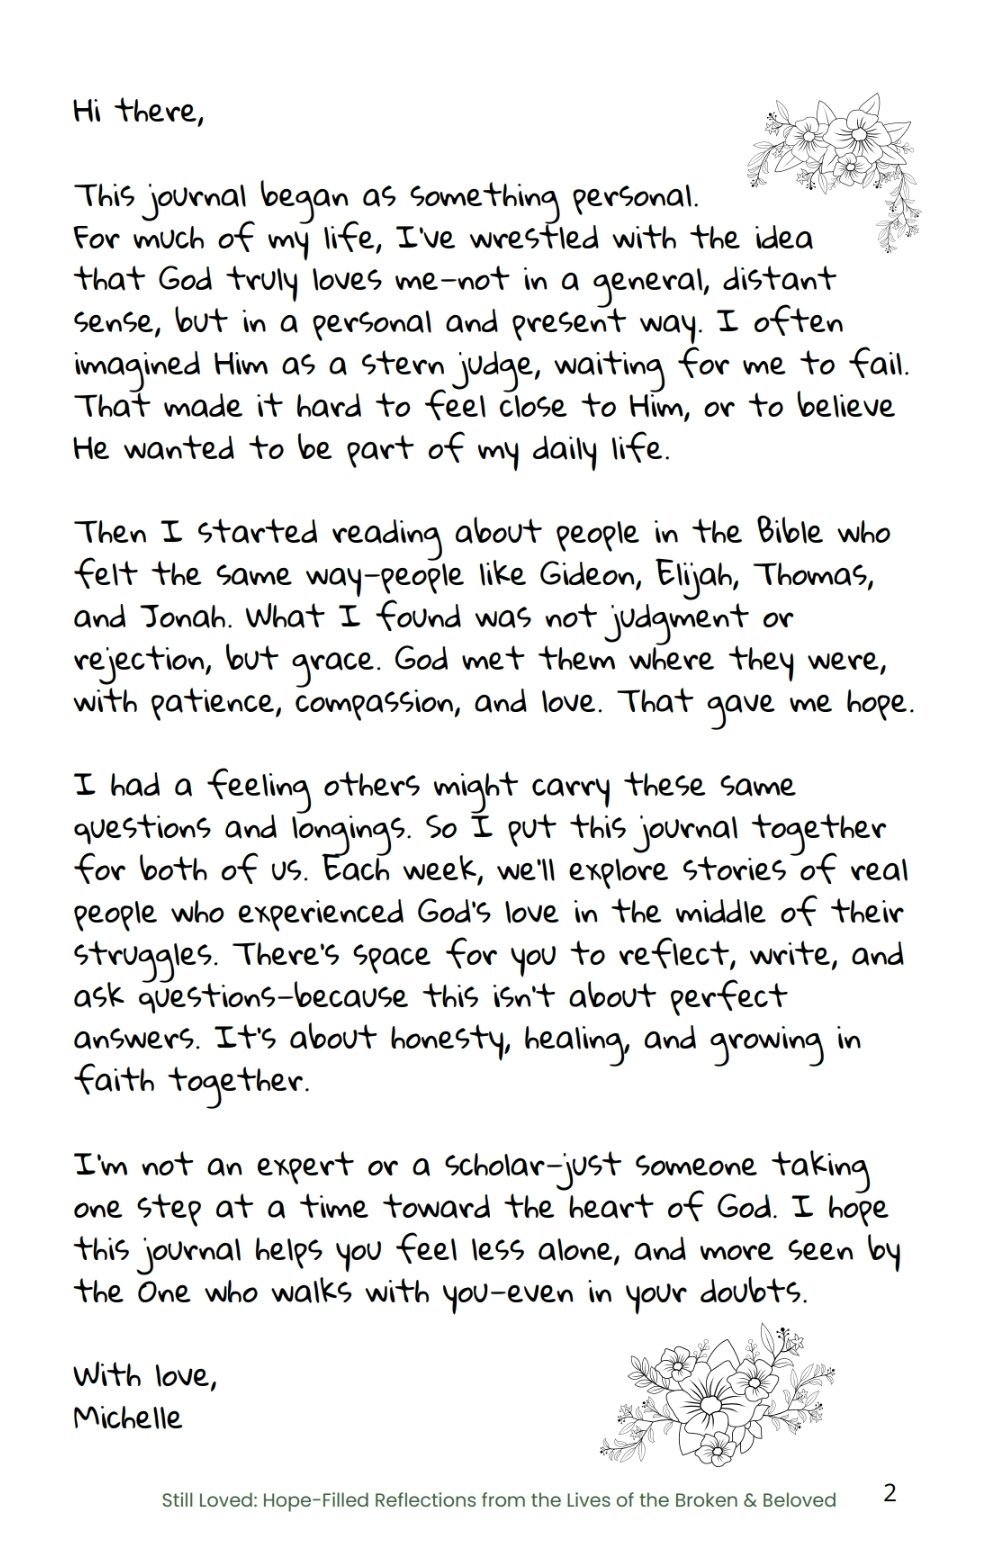 Hi there,
This journal began as something personal.
For much of my life, I've wrestled with the idea
that God truly loves me-not in a general, distant
sense, but in a personal and present way. I often
imagined Him as a stern judge, waiting for me to fail.
That made it hard to feel close to Him, or to believe
He wanted to be part of my daily life.
Then I started reading about people in the Bible who
felt the same way-people like Gideon, Elijah, Thomas,
and Jonah. What I found was not judgment or
rejection, but grace. God met them where they were,
with patience, compassion, and love. That gave me hope.
I had a feeling others might carry these same
questions and longings. So I put this journal together
for both of us. Each week, we'll explore stories of real
people who experienced God's love in the middle of their
struggles. There's space for you to reflect, write, and
ask questions-because this isn't about perfect
answers. It's about honesty, healing, and growing in
faith together.
I'm not an expert or a scholar-just someone taking
one step at a time toward the heart of God. I hope
this journal helps you feel less alone, and more seen by
the One who walks with you-even in your doubts.
With love,
Michelle
Still Loved: Hope-Filled Reflections from the Lives of the Broken & Beloved 2